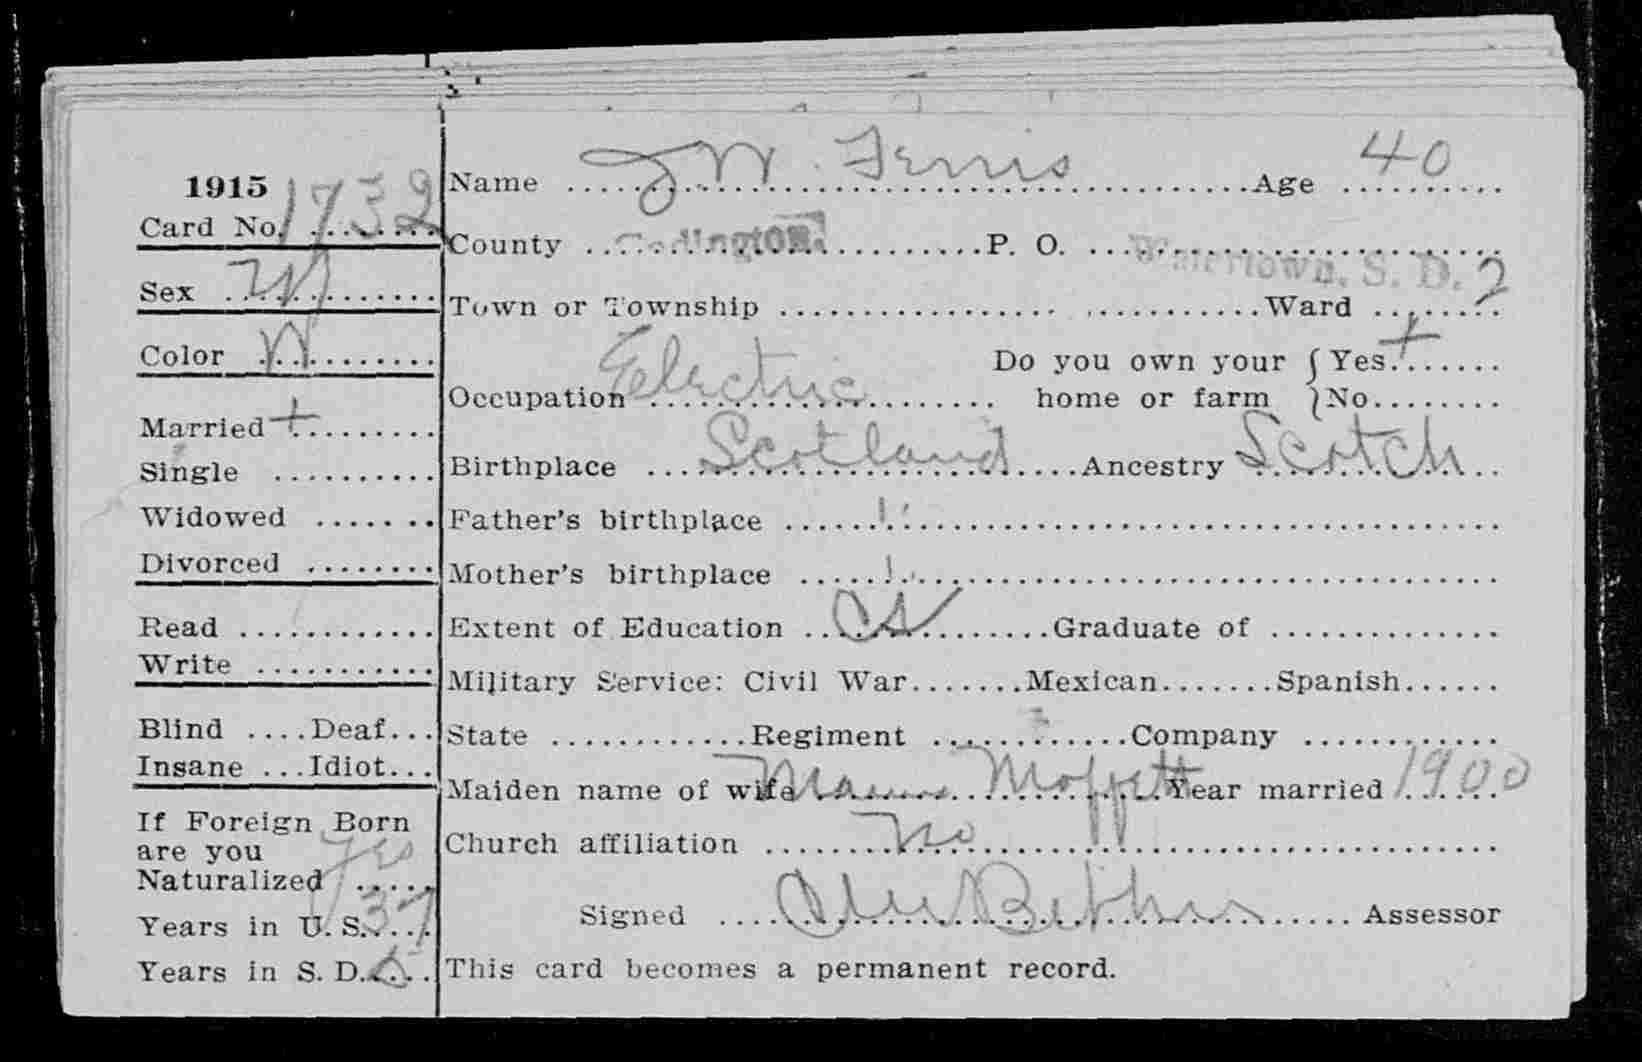 1915
Card No. 1732
Sex M
Color W
Married +
Single
Widowed
Divorced
Read
Write
Blind Deaf
Insane Idiot
If Foreign Born
are you
Naturalized yes
Years in U. S. 37
Years in S. D.
Name J W. Ferris Age 40
County Codington P. O. Watertown, S. D.
Town or Township Ward 2
Occupation Electric Do you own your home or farm Yes + No
Birthplace Scotland Ancestry Scotch
Father's birthplace "
Mother's birthplace "
Extent of Education CS Graduate of
Military Service: Civil War Mexican Spanish
State Regiment Company
Maiden name of wife Moffett Year married 1900
Church affiliation No
Signed Assessor
This card becomes a permanent record.